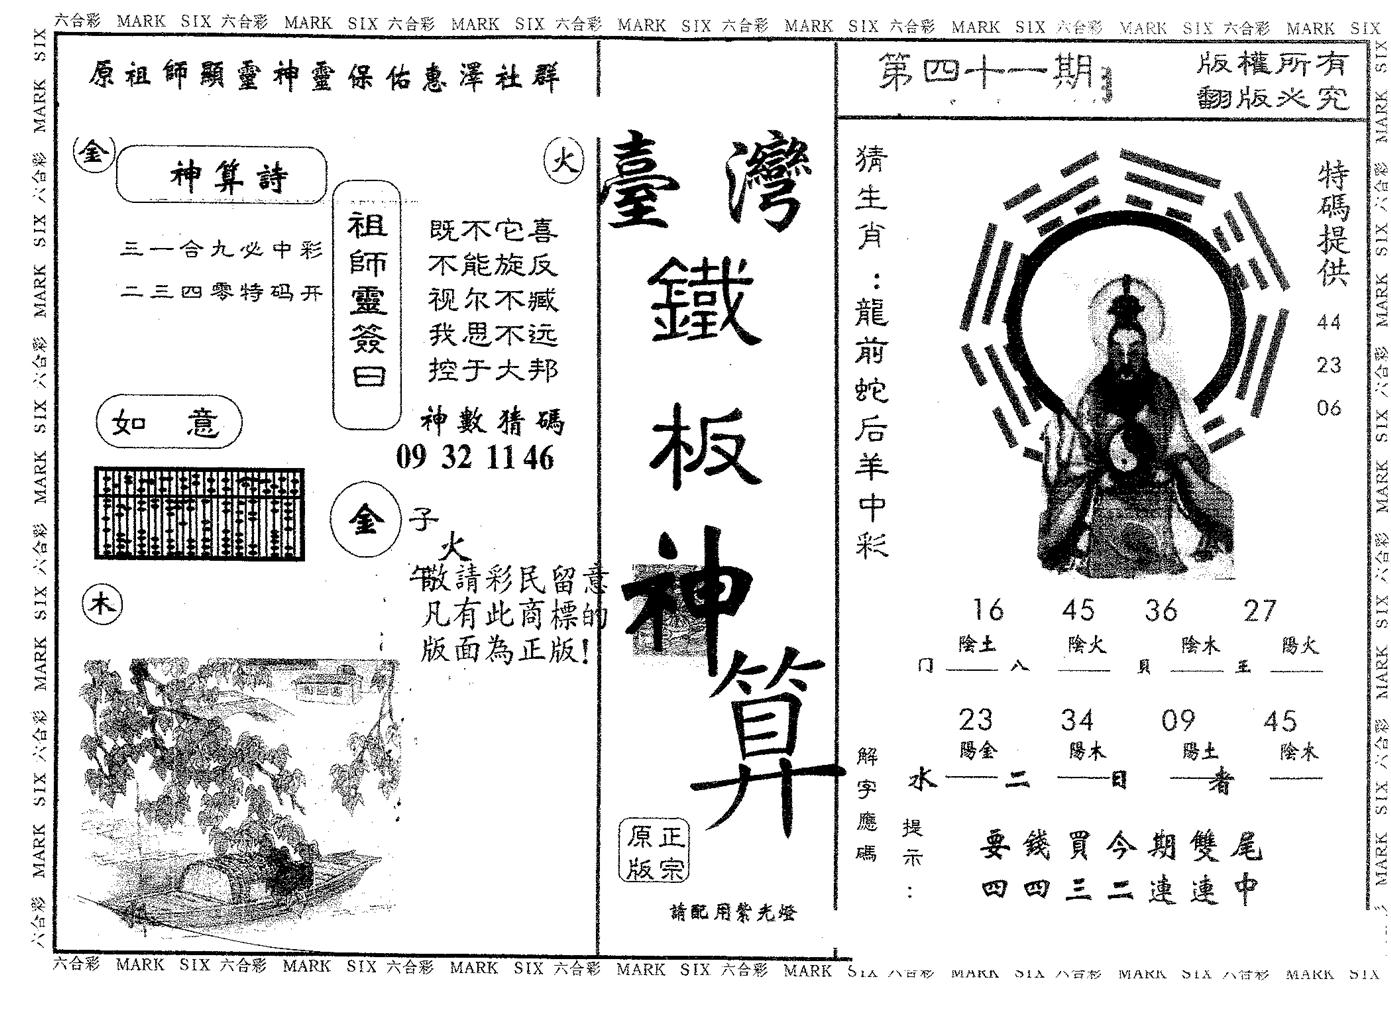 六合彩 MARK SIX 六合彩 MARK SIX 六合彩 MARK SIX 六合彩 MARK SIX 六合彩 MARK SIX 六合彩 MARK SIX 六合彩 MARK SIX 六合彩 MARK SIX
原祖師顯靈神靈保佑惠澤社群
金
神算詩
火
三一合九必中彩
二三四零特码开
祖師靈簽曰
既不它喜
不能旋反
视尔不臧
我思不远
控于大邦
神數猜碼
09 32 11 46
如意
金
子
火
午
敬請彩民留意
凡有此商標的
版面為正版!
木
臺灣
鐵
板
神
算
正宗
原版
請配用紫光燈
第四十一期
版權所有
翻版必究
猜生肖：龍前蛇后羊中彩
特碼提供
44
23
06
16 45 36 27
陰土 陰火 陰木 陽火
门 八 貝 王
23 34 09 45
陽金 陽木 陽土 陰木
水 二 日 者
解字應碼
提示：
要錢買今期雙尾
四四三二連連中
六合彩 MARK SIX 六合彩 MARK SIX 六合彩 MARK SIX 六合彩 MARK SIX 六合彩 MARK SIX 六合彩 MARK SIX 六合彩 MARK SIX 六合彩 MARK SIX